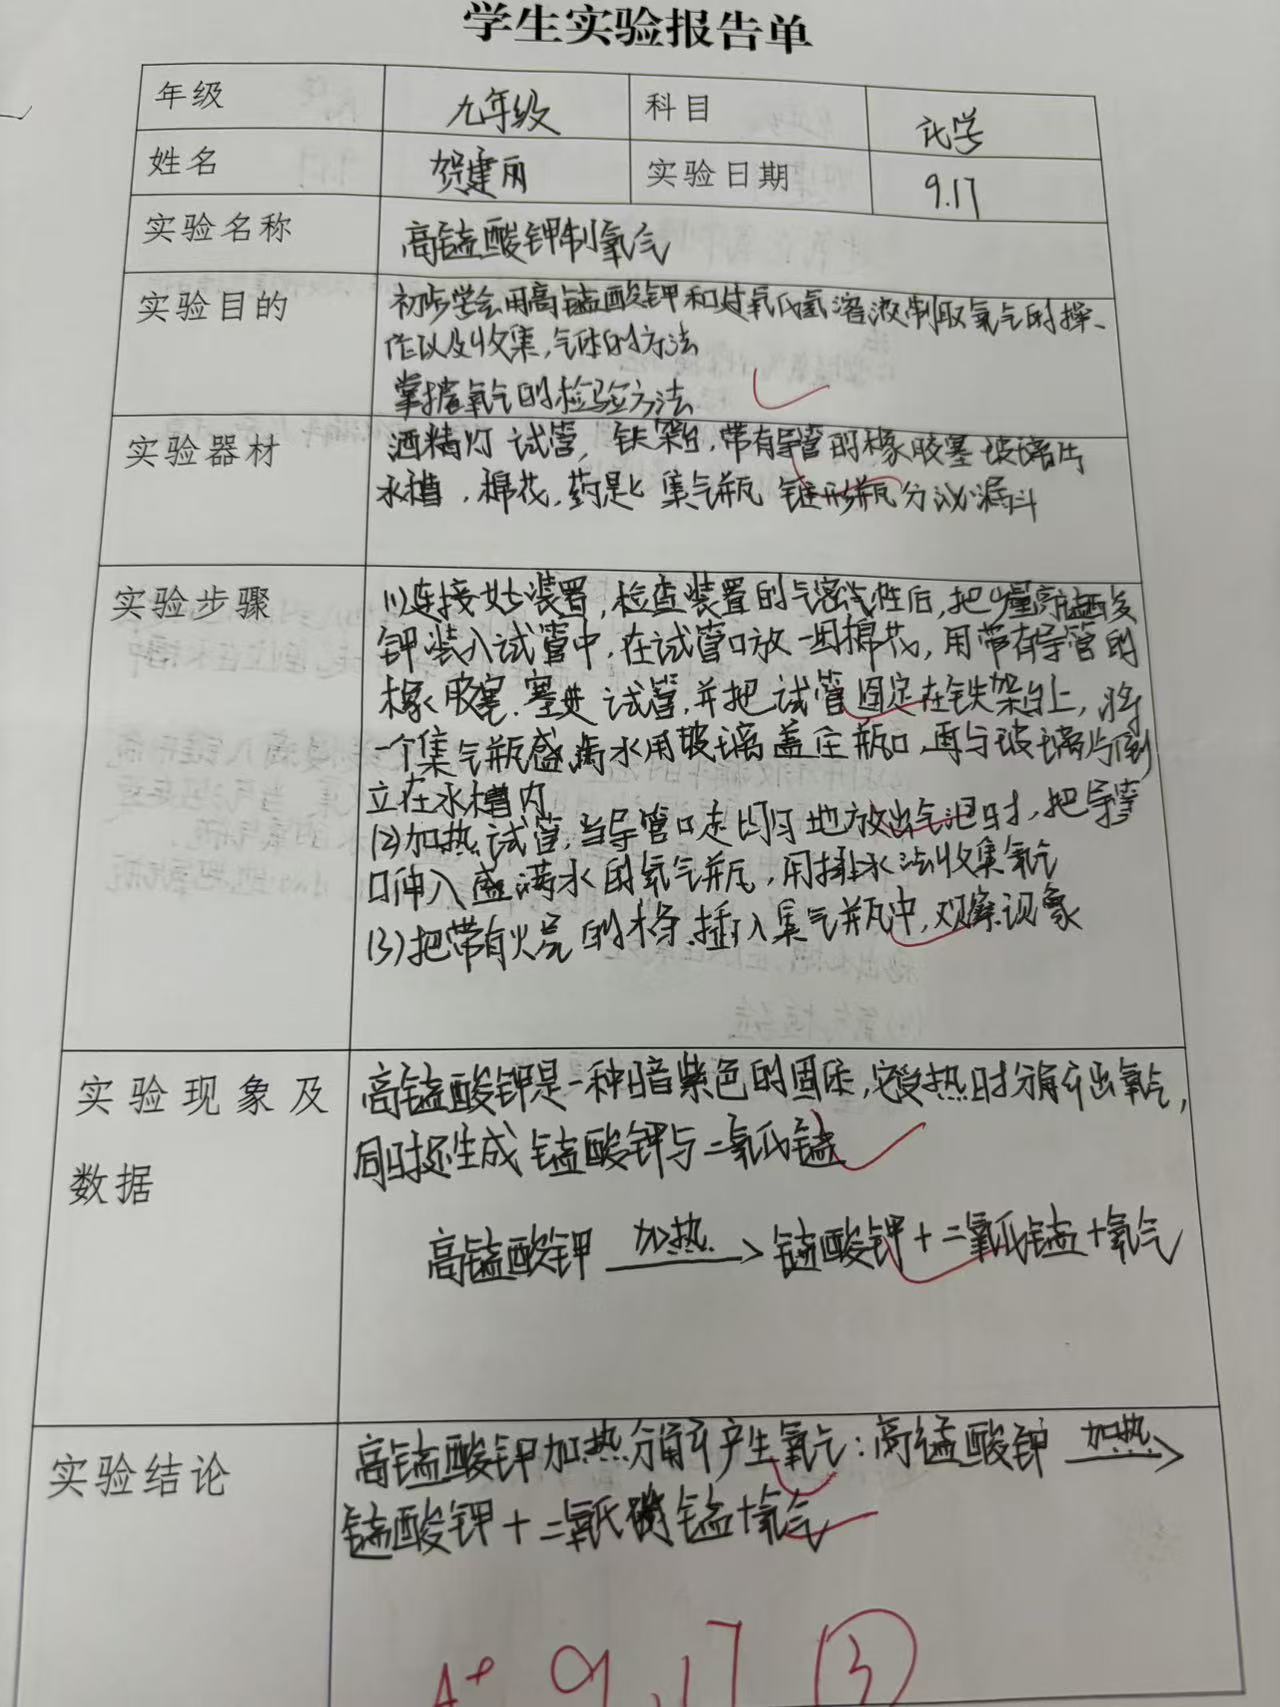 学生实验报告单
年级 九年级 科目 化学
姓名 贺建丽 实验日期 9.17
实验名称 高锰酸钾制氧气
实验目的 初步学会用高锰酸钾和过氧化氢溶液制取氧气的操
作以及收集气体的方法
掌握氧气的检验方法
实验器材 酒精灯 试管,铁架台,带有导管的橡胶塞 玻璃片
水槽,棉花,药匙 集气瓶 锥形瓶 分液漏斗
实验步骤 (1)连接好装置,检查装置的气密性后,把少量高锰酸
钾装入试管中,在试管口放一团棉花,用带有导管的
橡胶塞塞进试管,并把试管固定在铁架台上,将
一个集气瓶盛满水用玻璃盖住瓶口,再与玻璃片倒
立在水槽内
(2)加热试管,当导管口连均匀地放出气泡时,把导管
口伸入盛满水的氧气瓶,用排水法收集氧气
(3)把带有火星的木条插入集气瓶中,观察现象
实验现象及 高锰酸钾是一种暗紫色的固体,它受热时分解出氧气,
数据 同时还生成锰酸钾与二氧化锰
高锰酸钾 加热 → 锰酸钾+二氧化锰+氧气
实验结论 高锰酸钾加热分解产生氧气:高锰酸钾 加热 →
锰酸钾+二氧化锰+氧气
A+ 9.17 ③